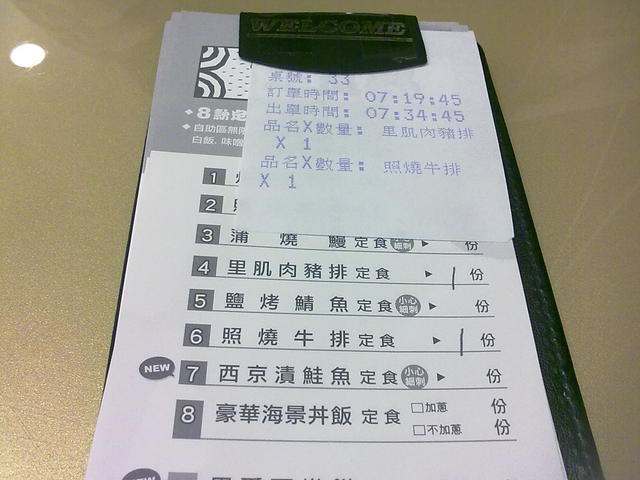 WELCOME
桌號: 33
訂單時間: 07:19:45
出單時間: 07:34:45
品名X數量: 里肌肉豬排
X 1
品名X數量: 照燒牛排
X 1
8
自助區無限
白飯. 味噌
1
2
3 蒲燒鰻定食 ▶ 份
4 里肌肉豬排定食 ▶ | 份
5 鹽烤鯖魚定食 小心細刺 ▶ 份
6 照燒牛排定食 ▶ | 份
NEW 7 西京漬鮭魚定食 小心細刺 ▶ 份
8 豪華海景丼飯定食 □加蔥 份
□不加蔥 份